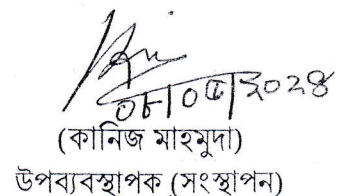 ০৮|০৫|২০২৪
(কানিজ মাহমুদা)
উপব্যবস্থাপক (সংস্থাপন)